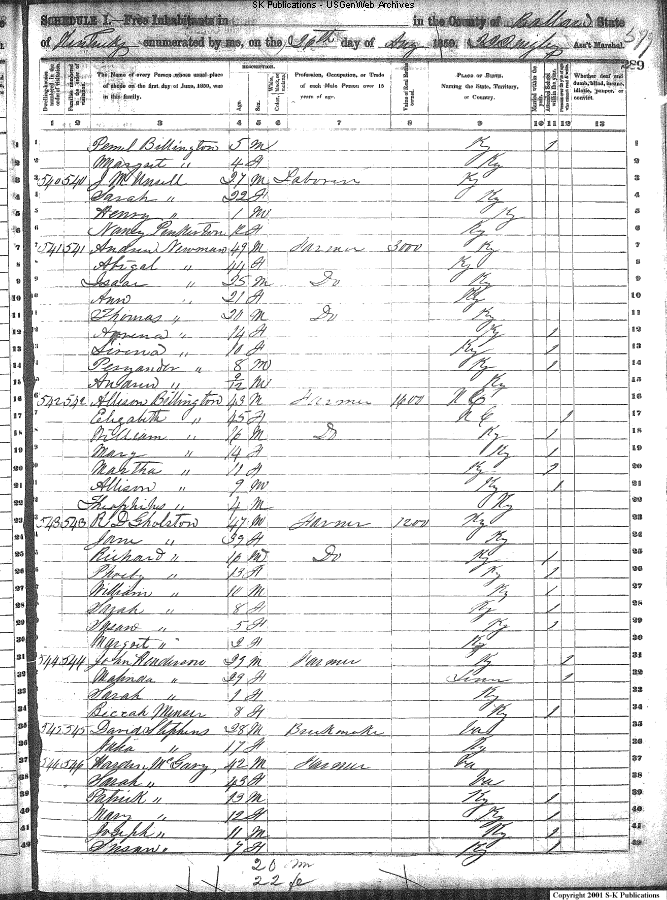 S-K Publications - USGenWeb Archives
SCHEDULE I.—Free Inhabitants in in the County of State
of Kentucky enumerated by me, on the day of Aug 1850. Ass't Marshal.
589
DESCRIPTION.
The Name of every Person whose usual place of abode on the first day of June, 1850, was in this family.
Age. Sex.
Profession, Occupation, or Trade of each Male Person over 15 years of age.
Value of Real Estate owned.
PLACE OF BIRTH. Naming the State, Territory, or Country.
Whether deaf and dumb, blind, insane, idiotic, pauper, or convict.
1 2 3 4 5 6 7 8 9 10 11 12 13
1 Billington 5 M Ky 1
2 Margart " 4 f Ky
3 540 540 J 27 M Laborer Ky
4 Sarah " 22 f Ky
5 Henry " 1 M Ky
6 Nancy 12 f Ky
7 541 541 Andrew Newman 49 M Farmer 3000 Ky
8 Abigal " 44 f Ky
9 Isaac " 25 M Do Ky
10 Ann " 21 f Ky
11 Thomas " 20 M Do Ky
12 " 14 f Ky 1
13 " 10 f Ky 1
14 " 8 M Ky 1
15 Andrew " 9/12 M Ky
16 542 542 Allison Billington 43 M Farmer 1400 N C
17 Elizabeth " 45 f N C 1
18 William " 16 M Do Ky 1
19 Mary " 14 f Ky 1
20 Martha " 11 f Ky 1
21 Allison " 9 M Ky 1
22 Theophilus " 4 M Ky
23 543 543 R D Gholston 47 M Farmer 1200 Ky
24 Jane " 39 f Ky
25 Richard " 16 M Do Ky 1
26 " 13 f Ky 1
27 William " 10 M Ky 1
28 Sarah " 8 f Ky 1
29 Susan " 5 f Ky 1
30 Margart " 2 f Ky
31 544 544 John Henderson 29 M Farmer Ky 1
32 Malinda " 29 f Tenn 1
33 Sarah " 1 f Ky
34 8 f Ky 1
35 545 545 David Stephens 28 M Va
36 " 17 f Ky
37 546 546 McGary 42 M Farmer Va
38 Sarah " 43 f Va
39 Patrick " 13 M Ky 1
40 Mary " 12 f Ky 1
41 Joseph " 11 M Ky 1
42 Susan " 7 f Ky 1
20 m
22 fe
Copyright 2001 S-K Publications